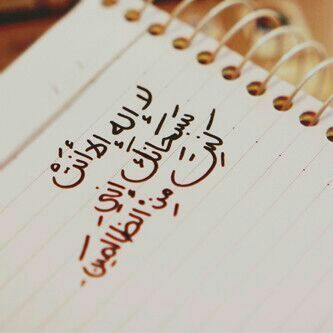 لا إِلهَ إِلا أَنْتْ
سبحَانَكَ إِنيِ
كنِتَ مِنِ الظالمينَ